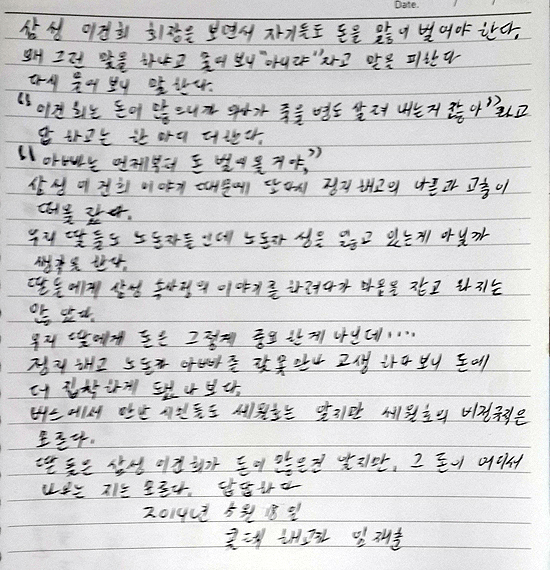 Date.
삼성 이건희 회장을 보면서 자기들도 돈을 많이 벌어야 한다.
왜 그런 말을 하냐고 물어 보니 "아니다" 라고 말을 피한다
다시 물어 보니 말 한다.
"이건희는 돈이 많으니까 의사가 죽을 병도 살려 내는거 잖아"라고
답 하고는 한 마디 더한다.
"아빠는 언제부터 돈 벌어올 거야."
삼성 이건희 이야기 때문에 또다시 정리해고의 아픔과 고충이
떠올 랐다.
우리 딸들도 노동자들인데 노동자 성을 잃고 있는게 아닐까
생각을 한다.
딸들에게 삼성 속사정의 이야기를 하려다가 마음을 잡고 하지는
않 았다.
우리 딸에게 돈은 그렇게 중요 한게 아닌데....
정리 해고 노동자 아빠를 잘못 만나 고생 하다보니 돈에
더 집착하게 됐 나 보다.
버스에서 만난 시민들도 세월호는 알지만 세월호의 비정규직은
모른다.
딸 들은 삼성 이건희가 돈이 많은건 알지만, 그 돈이 어디서
나오는 지는 모른다. 답답하다
2014년 5월 18일
콜텍 해고자 임재춘